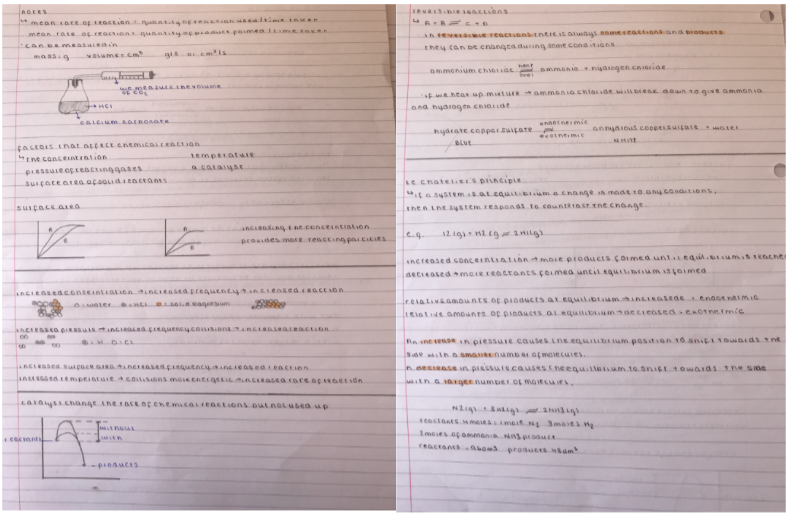 notes
↳ mean rate of reaction = quantity of reaction used / time taken
mean rate of reaction = quantity of product formed / time taken
can be measured in
mass: g volume = cm³ g/s or cm³/s
we measure the volume
of CO₂
HCl
calcium carbonate
factors that affect chemical reaction
↳ the concentration temperature
pressure of reacting gases a catalyst
surface area of solid reactants
surface area
A
B
increasing the concentration
provides more reacting particles
increased concentration → increased frequency → increased reaction
= water = HCl = solid magnesium
increased pressure → increased frequency collisions → increased reaction
= H = Cl
increased surface area → increased frequency → increased reaction
increased temperature → collisions more energetic → increased rate of reaction
catalyst change the rate of chemical reactions but not used up
without
with
reactants
products
reversible reactions
↳ A + B ⇌ C + D
in reversible reactions there is always some reactions and products
they can be changed during some conditions
ammonium chloride heat ⇌ ammonia + hydrogen chloride
if we heat up mixture → ammonia chloride will break down to give ammonia
and hydrogen chloride
endothermic
hydrate copper sulfate ⇌ anhydrous copper sulfate + water
exothermic
BLUE WHITE
le chatelier's principle
↳ if a system is at equilibrium a change is made to any conditions,
then the system responds to counteract the change
e.g. I2(g) + H2(g ⇌ 2HI(g)
increased concentration → more products formed until equilibrium is reached
decreased → more reactants formed until equilibrium is formed
relative amounts of products at equilibrium → increased = endothermic
relative amounts of products at equilibrium → decreased = exothermic
An increase in pressure causes the equilibrium position to shift towards the
side with a smaller number of molecules.
decrease in pressure causes the equilibrium to shift towards the side
with a larger number of molecules.
N2(g) + 3H2(g) ⇌ 2NH3(g)
reactants 4 moles: 1 mole N₂ 3 moles H₂
2 moles of ammonia NH3 product
reactants = 96dm3 products 48dm³